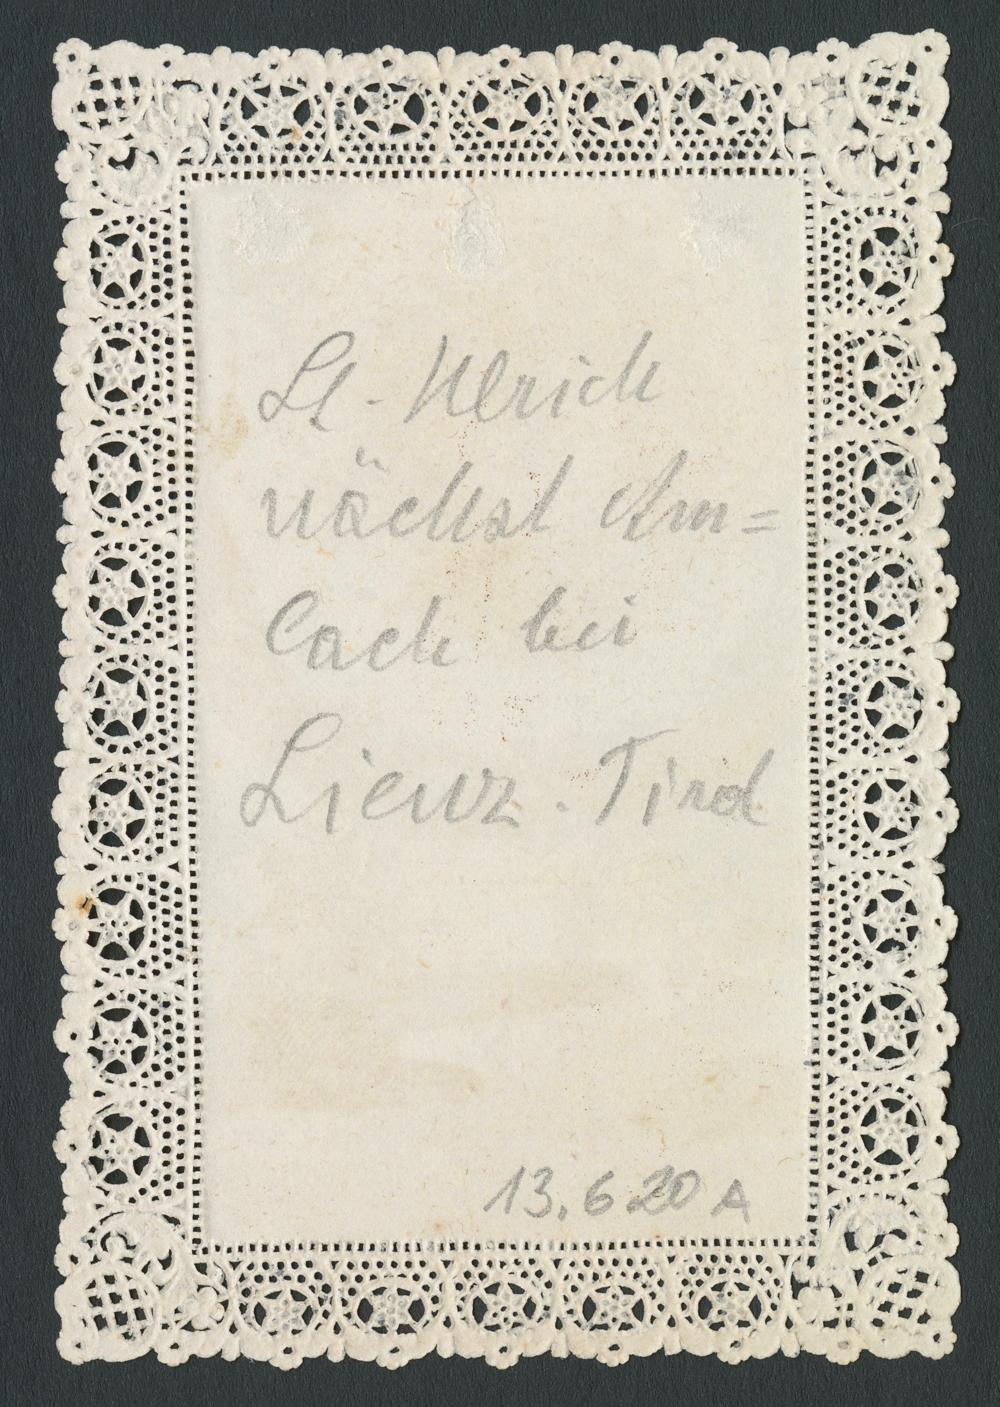 St. Ulrich
nächst Am=
lach bei
Lienz. Tirol
13.6 20 A